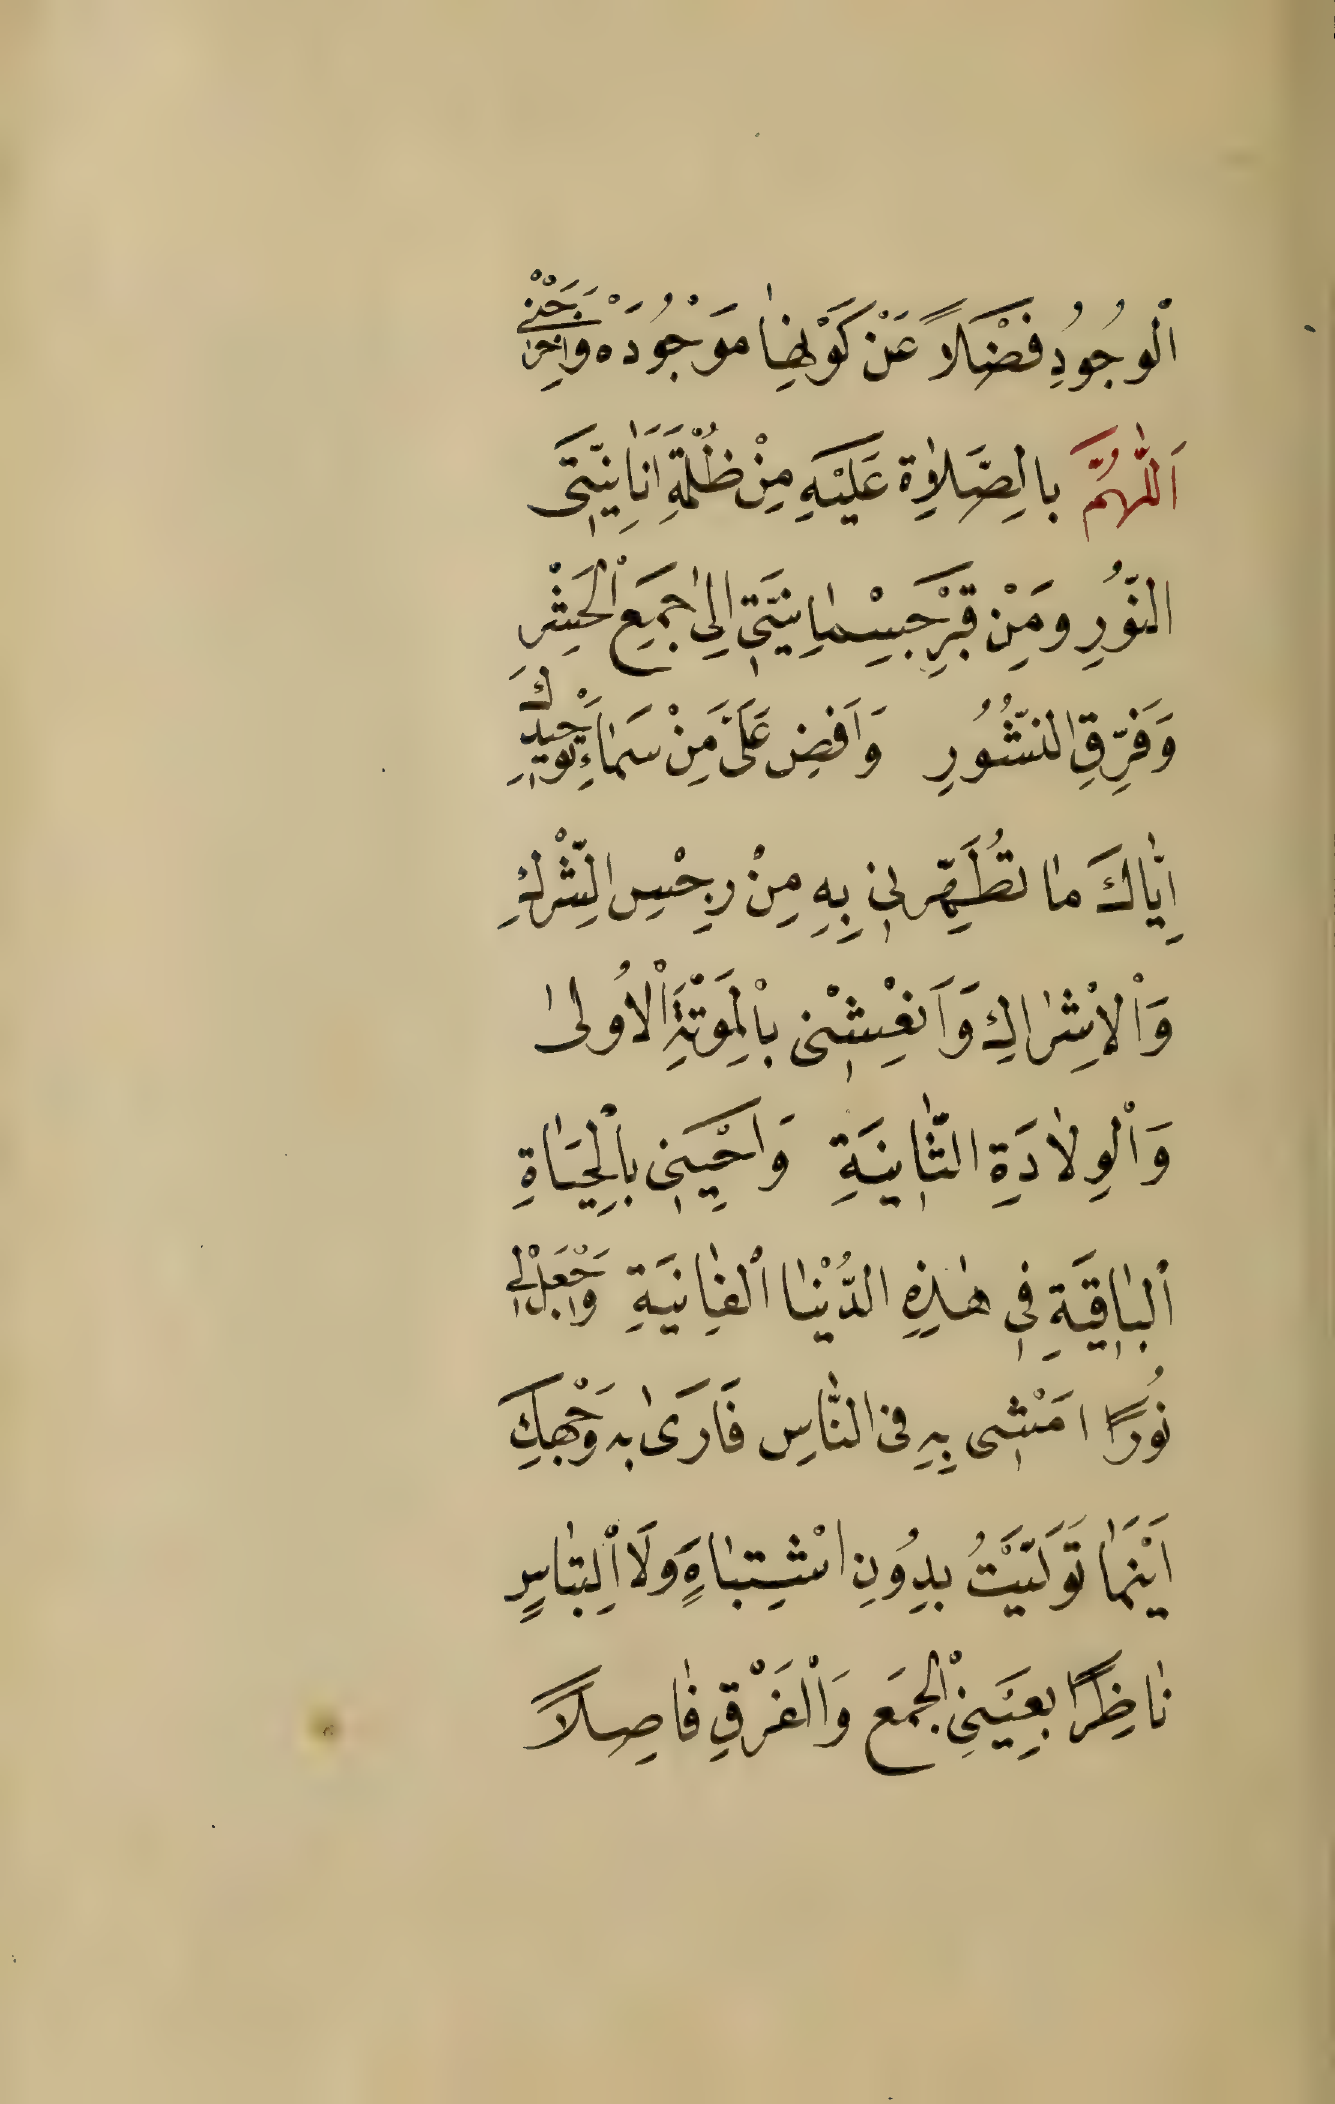 اْلوُجُودِ فَضْلاً عَنْ كَوْنِهٰا مَوْجُودَةْ وَاَخْرِجْنٖى
اَللّٰهُمَّ بالِصَّلاٰوِة عَلَيْهِ مِنْ ظُلْمَةِ اَنَانِيَّتٖى اِلَى
النّوُرِ وَمِنْ قَبْرِ جِسْمٰانِيَّتٖى اِلىٰ جَمِعِ اْلحَشْرِ
وَفَرّقِ النّشُوُرِ وَاَفِضْ عَلَىَّ مِنْ سَمٰاءِ تَوْحٖيدِكَ
اِيّٰاكَ مٰا تُطَهِّرُنٖى بِهِ مِنْ رِجْسِ الِشّرْكِ
وَاْلاِشْرٰاكِ وَاَنْعِشْنٖى بِاْلمَوْتَةِ اْلاُولىٰ
وَاْلوِلاٰدَةِ الثّٰانِيَةِ وَاَحْيِنٖى بِاْلحَيٰاةِ
اْلبٰاقِيَةِ فٖى هٰذِهِ الدُّنْيٰا اْلفٰانِيَةِ وَاجْعَلْ لٖى
نُورًا اَمْشٖى بِهِ فى النّٰاسِ فَاَرىٰ بِهِ وَجْهَكَ
اَيْنَمٰا تَوَلَّيْتُ بِدُونِ اشْتِبٰاهٍ وَلَا اْلتِبٰاسٍ
نٰاظِرًا بِعَيْنَىِ اْلجَمَعِ وَاْلفَرْقِ فٰاصِلاً